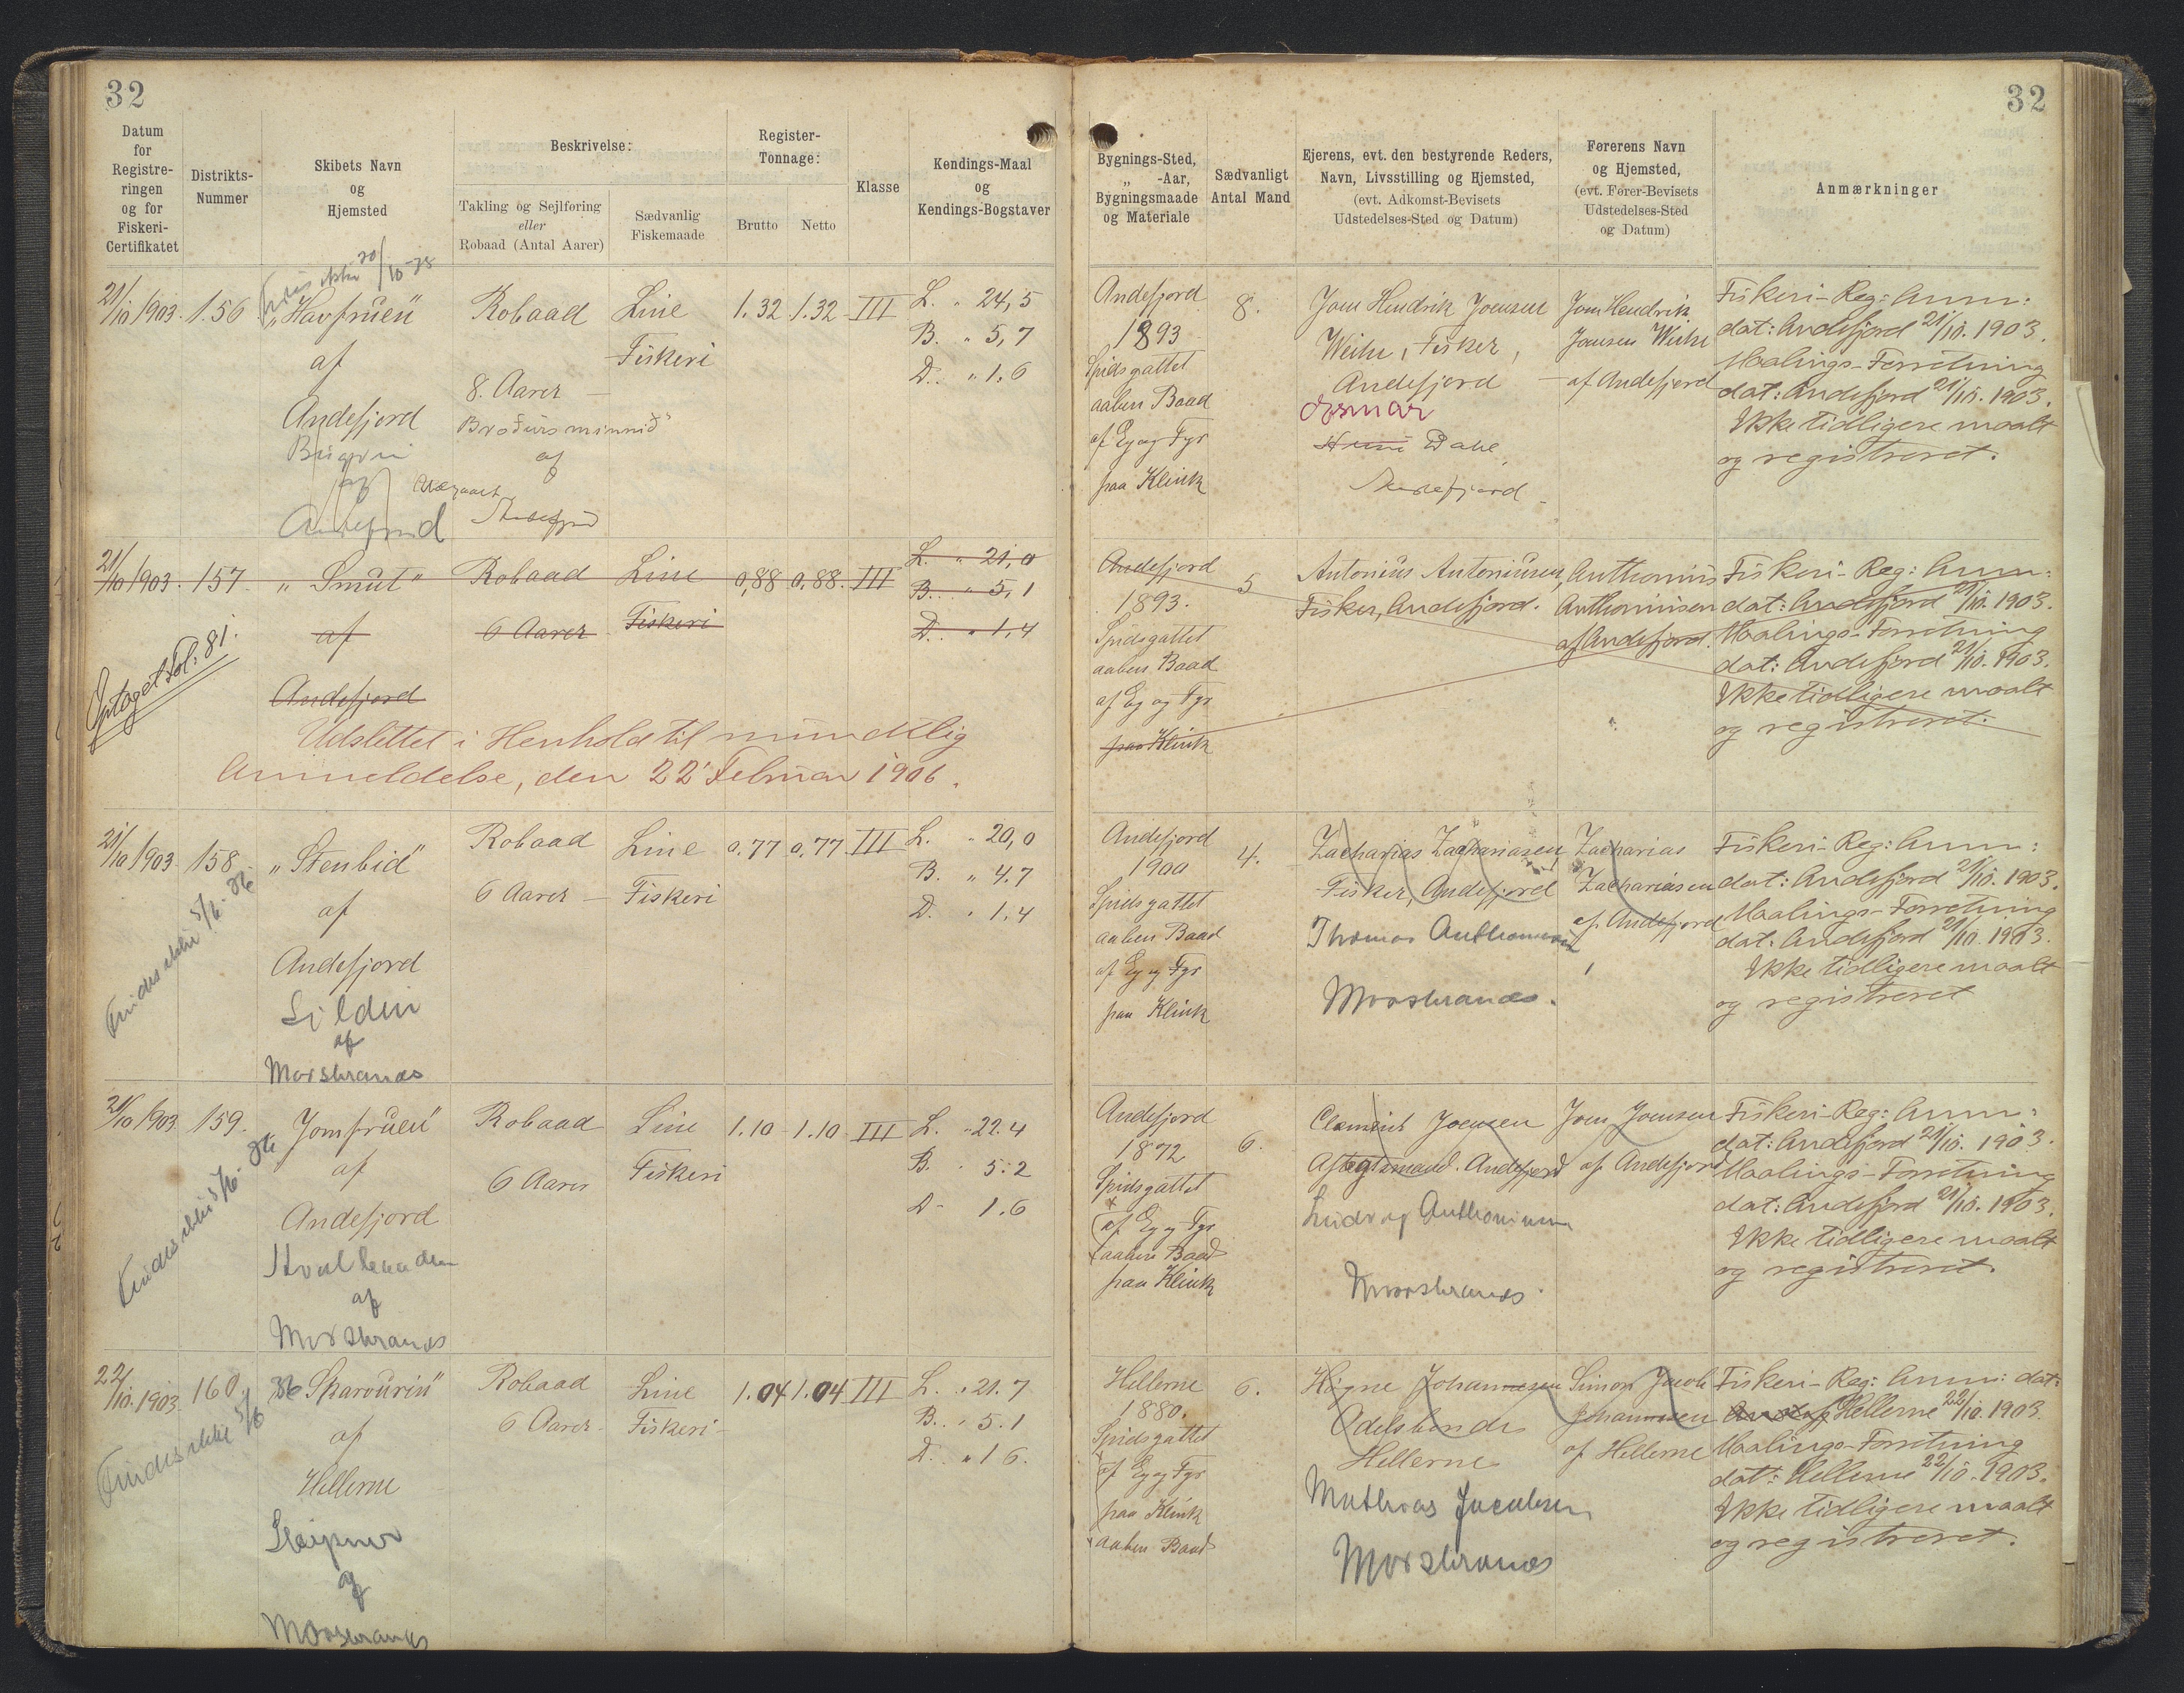 32
32
Datum
for
Registre-
ringen
og for
Fiskeri-
Certifikatet
Distrikts-
Nummer
Skibets Navn
og
Hjemsted
Beskrivelse:
Takling og Sejlføring
eller
Robaad (Antal Aarer)
Sædvanlig
Fiskemaade
Register-
Tonnage:
Brutto
Netto
Klasse
Kendings-Maal
og
Kendings-Bogstaver
Bygnings-Sted,
„ -Aar,
Bygningsmaade
og Materiale
Sædvanligt
Antal Mand
Ejerens, evt. den bestyrende Reders,
Navn, Livsstilling og Hjemsted,
(evt. Adkomst-Bevisets
Udstedelses-Sted og Datum)
Førerens Navn
og Hjemsted,
(evt. Fører-Bevisets
Udstedelses-Sted
og Datum)
Anmærkninger
Findes ikke 20/10-38
21/10 1903. 156
„Havfruen"
af
Andefjord
af
Andefjord
Robaad
8. Aarer —
Broðurs minnið"
af
Andefjord
Line
Fiskeri
1.32 1.32 III
L. „ 24,5
B. „ 5,7
D. „ 1.6
Andefjord
1893
Spidsgattet
aaben Baad
af Eg og Fyr
paa Klink
8.
Joen Hendrik Joensen
Weihe, Fisker,
Andefjord
Dahl,
Andefjord
Joen Hendrik
Joensen Weihe
af Andefjord
Fiskeri-Reg: Anm:
dat: Andefjord 21/10. 1903.
Maalings-Forretning
dat: Andefjord 21/10. 1903.
Ikke tidligere maalt
og registreret.
21/10 1903. 157.
„Smut"
af
Andefjord
Optaget Fol: 81.
Robaad
6 Aarer
Line
Fiskeri
0,88 0,88. III
L. „ 21,0
B. „ 5,1
D. „ 1,4
Udslettet i Henhold til mundtlig
Anmeldelse, den 22' Februar 1906.
Andefjord
1893.
Spidsgattet
aaben Baad
af Eg og Fyr
paa Klink
5
Antonius Antoniusen,
Fisker, Andefjord.
Anthonius
Anthoniusen
af Andefjord.
Fiskeri-Reg: Anm:
dat: Andefjord 21/10. 1903.
Maalings-Forretning
dat: Andefjord 21/10. 1903.
Ikke tidligere maalt
og registreret.
21/10 1903. 158.
Findes ikke 5/6-36
„Stenbid"
af
Andefjord
Silden
af
Morskranes
Robaad
6 Aarer —
Line
Fiskeri
0.77 0,77 III
L. „ 20,0
B. „ 4.7
D. „ 1,4
Andefjord
1900
Spidsgattet
aaben Baad
af Eg og Fyr
paa Klink
4.
Zacharias Zachariasen,
Fisker, Andefjord
Thomas Anthoniusen
Morskranes.
Zacharias
Zachariasen
af Andefjord
Fiskeri-Reg: Anm:
dat: Andefjord 21/10. 1903.
Maalings-Forretning
dat: Andefjord 21/10. 1903.
Ikke tidligere maalt
og registreret
21/10 1903 159.
Findes ikke 5/6-36
„Jomfruen"
af
Andefjord
af
Morskranes
Robaad
6 Aarer
Line
Fiskeri
1.10 1.10 III
L. „ 22.4
B. „ 5.2
D. 1.6
Andefjord
1872
Spidsgattet
af Eg og Fyr
aaben Baad
paa Klink
6.
Clement Joensen
Aftægtsmand. Andefjord
Ludvig Anthoniusen
Morskranes.
Joen Joensen
af Andefjord
Fiskeri-Reg: Anm:
dat: Andefjord 21/10. 1903.
Maalings-Forretning
dat: Andefjord 21/10. 1903.
Ikke tidligere maalt
og registreret.
22/10. 1903 160.
Findes ikke 5/6 36
„Sparvurin"
af
Hellerne
Sleipner
af
Morskranes
Robaad
6 Aarer.
Line
Fiskeri
1.04 1.04 III
L. „ 21.7
B. „ 5.1
D. „ 1 6.
Hellerne
1880.
Spidsgattet
af Eg og Fyr
paa Klink
aaben Baad
6.
Høgne Johannesen
Odelsbonde
Hellerne
Mathias Jacobsen
Morskranes
Simon Jacob
Johannesen
af Hellerne
Fiskeri-Reg: Anm: dat:
Hellerne 22/10. 1903.
Maalings-Forretning
dat: Hellerne 22/10. 1903.
Ikke tidligere maalt
og registreret.